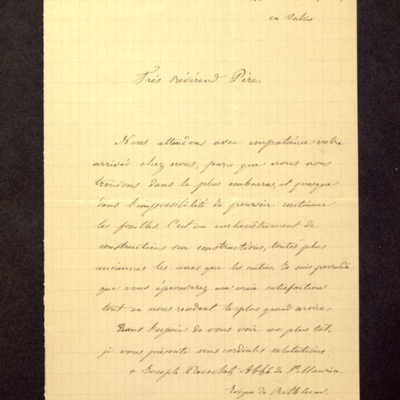 en Valais
Très Révérend Père,
Nous attendons avec impatience votre
arrivée chez nous, parce que nous nous
trouvons dans le plus embarras, et presque
dans l'impossibilité de pouvoir continuer
les fouilles. C'est un enchevêtrement de
constructions sur constructions, toutes plus
anciennes les unes que les autres. Je suis persuadé
que vous éprouverez une vraie satisfaction
tout en nous rendant le plus grand service.
Dans l'espoir de vous voir au plus tôt,
je vous présente mes cordiales salutations
+ Joseph Paccolat, Abbé de St Maurice
Evêque de Bethléem.